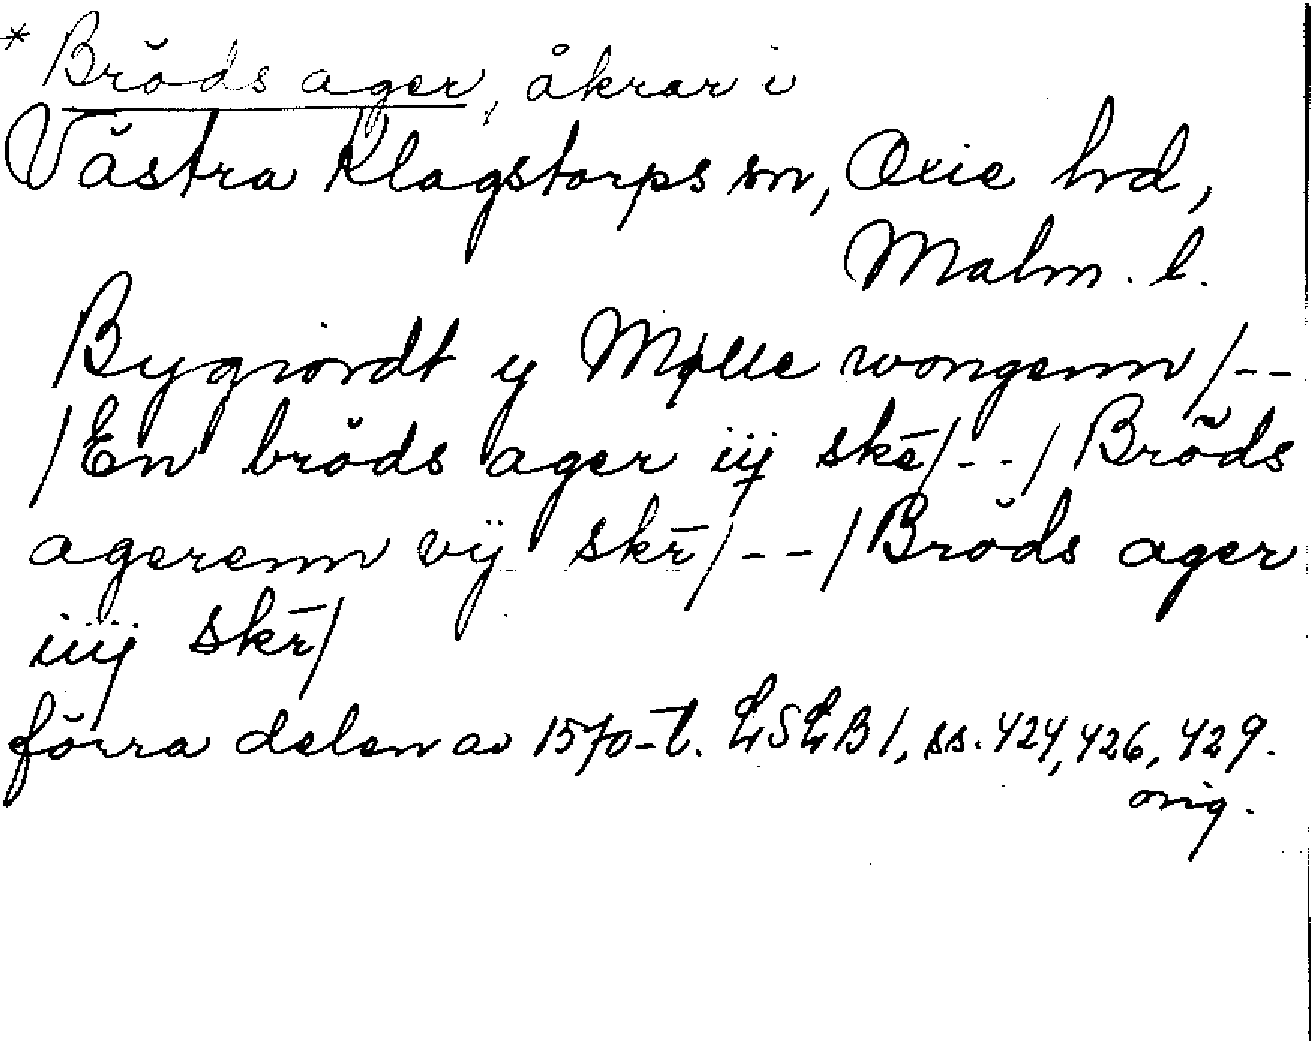 * Bröds ager, åkrar i
Västra Klagstorps sn, Oxie hd,
Malm. l.
Bygiordt y Mølle wongenn /--
/En bröds ager iij skē/--/Bröds
agerenn vij skr̄/--/Bröds ager
iiij skr̄/
förra delen av 1570-t. LSLB 1, ss. 424, 426, 429.
orig.